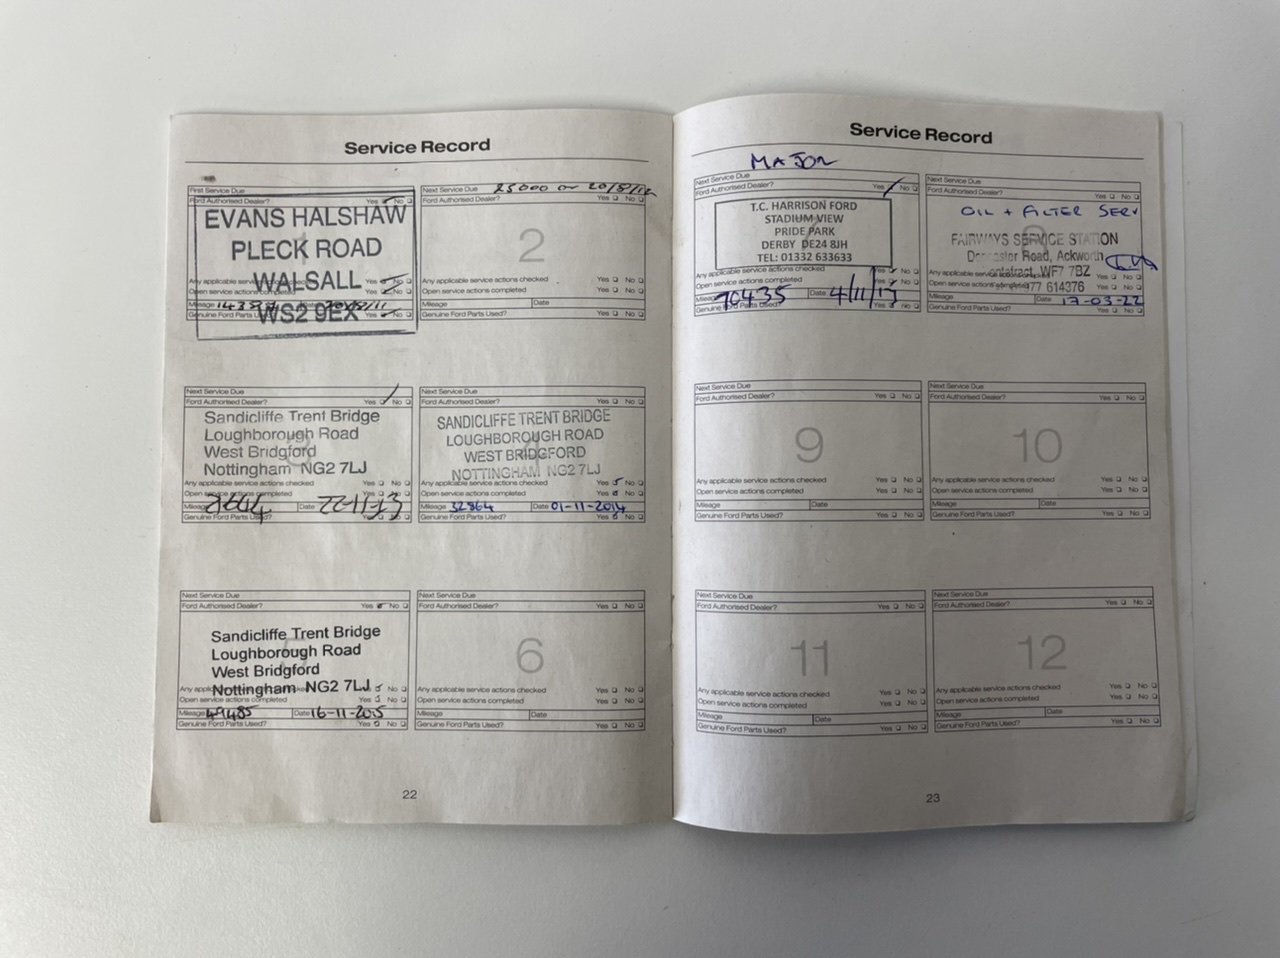 Service Record
First Service Due
Ford Authorised Dealer? Yes No
EVANS HALSHAW
PLECK ROAD
WALSALL
WS2 9EX
Any applicable service actions checked Yes No
Open service actions completed Yes No
Mileage Date
Genuine Ford Parts Used? Yes No
Next Service Due 25000 or 20/8/12
Ford Authorised Dealer? Yes No
2
Any applicable service actions checked Yes No
Open service actions completed Yes No
Mileage Date
Genuine Ford Parts Used? Yes No
Next Service Due
Ford Authorised Dealer? Yes No
3
Sandicliffe Trent Bridge
Loughborough Road
West Bridgford
Nottingham NG2 7LJ
Any applicable service actions checked Yes No
Open service actions completed Yes No
Mileage Date 22-11-13
Genuine Ford Parts Used? Yes No
Next Service Due
Ford Authorised Dealer? Yes No
4
SANDICLIFFE TRENT BRIDGE
LOUGHBOROUGH ROAD
WEST BRIDGFORD
NOTTINGHAM NG2 7LJ
Any applicable service actions checked Yes No
Open service actions completed Yes No
Mileage 32864 Date 01-11-2014
Genuine Ford Parts Used? Yes No
Next Service Due
Ford Authorised Dealer? Yes No
5
Sandicliffe Trent Bridge
Loughborough Road
West Bridgford
Nottingham NG2 7LJ
Any applicable service actions checked Yes No
Open service actions completed Yes No
Mileage 49485 Date 16-11-2015
Genuine Ford Parts Used? Yes No
Next Service Due
Ford Authorised Dealer? Yes No
6
Any applicable service actions checked Yes No
Open service actions completed Yes No
Mileage Date
Genuine Ford Parts Used? Yes No
22
Service Record
MAJOR
Next Service Due
Ford Authorised Dealer? Yes No
T.C. HARRISON FORD
STADIUM VIEW
PRIDE PARK
DERBY DE24 8JH
TEL: 01332 633633
Any applicable service actions checked Yes No
Open service actions completed Yes No
Mileage 70435 Date 4/11/17
Genuine Ford Parts Used? Yes No
Next Service Due
Ford Authorised Dealer? Yes No
OIL + FILTER SERV
8
FAIRWAYS SERVICE STATION
Doncaster Road, Ackworth
Pontefract, WF7 7BZ
614376
Any applicable service actions checked Yes No
Open service actions completed Yes No
Mileage Date 17-03-22
Genuine Ford Parts Used? Yes No
Next Service Due
Ford Authorised Dealer? Yes No
9
Any applicable service actions checked Yes No
Open service actions completed Yes No
Mileage Date
Genuine Ford Parts Used? Yes No
Next Service Due
Ford Authorised Dealer? Yes No
10
Any applicable service actions checked Yes No
Open service actions completed Yes No
Mileage Date
Genuine Ford Parts Used? Yes No
Next Service Due
Ford Authorised Dealer? Yes No
11
Any applicable service actions checked Yes No
Open service actions completed Yes No
Mileage Date
Genuine Ford Parts Used? Yes No
Next Service Due
Ford Authorised Dealer? Yes No
12
Any applicable service actions checked Yes No
Open service actions completed Yes No
Mileage Date
Genuine Ford Parts Used? Yes No
23